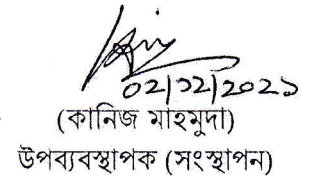 ০২/১২/২০২১
(কানিজ মাহমুদা)
উপব্যবস্থাপক (সংস্থাপন)